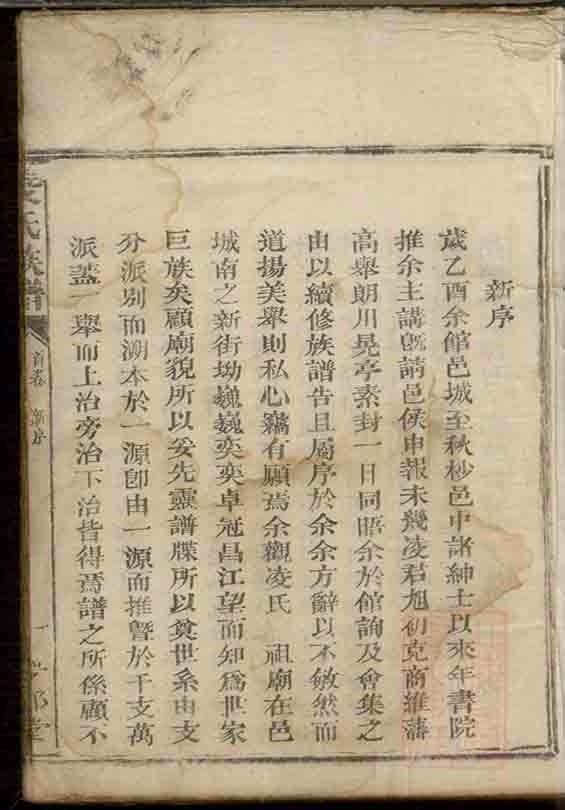 新序
歲乙酉余館邑城至秋杪邑中諸紳士以來年書院
推余主講旣請邑侯申報未幾凌君旭初克商維藩
高舉朗川晃亭素封一日同晤余於館詢及會集之
由以續修族譜告且屬序於余余方辭以不敏然而
道揚美舉則私心竊有願焉余觀凌氏 祖廟在邑
城南之新街坳巍巍奕奕卓冠昌江望而知爲世家
巨族矣顧廟貌所以妥先靈譜牒所以奠世系由支
分派别而溯本於一源卽由一源而推曁於千支萬
派蓋一舉而上治旁治下治皆得焉譜之所係顧不
凌氏族譜
首卷 新序
一
堂